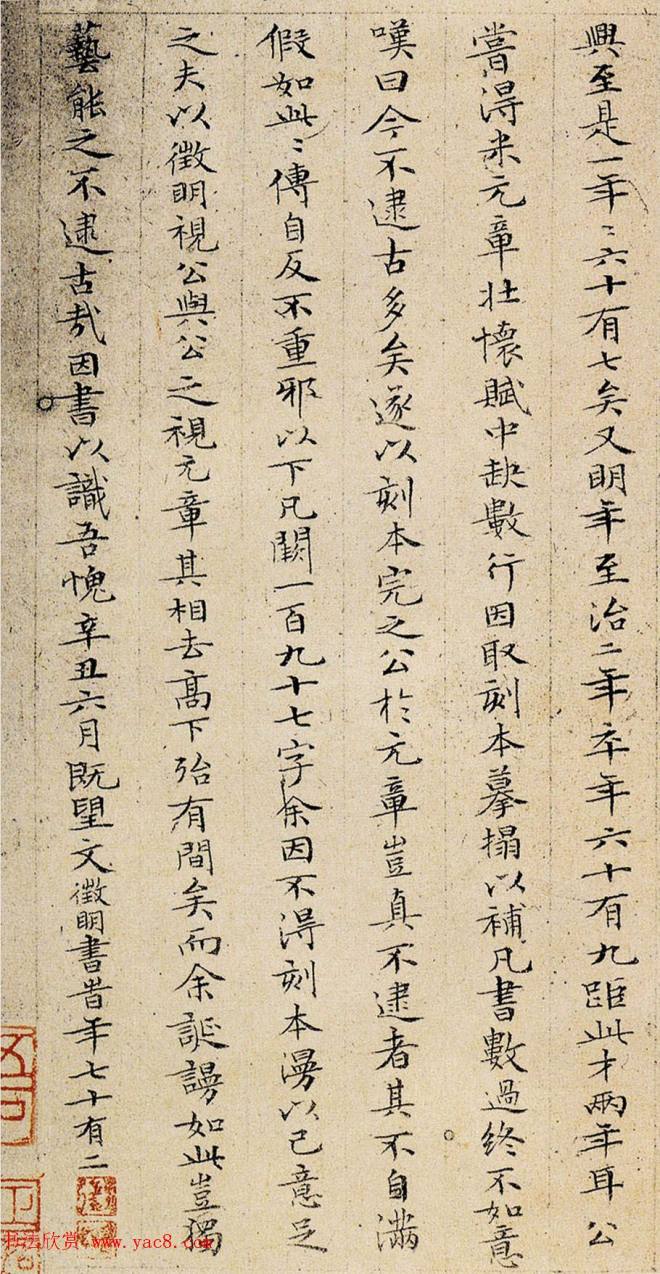 興至是一年〻六十有七矣又明年至治二年卒年六十有九距此才兩年耳公
嘗得米元章壯懷賦中缺數行因取刻本摹搨以補凡書數過終不如意
嘆曰今不逮古多矣遂以刻本完之公於元章豈真不逮者其不自滿
假如此〻傳自反不重邪以下凡闕一百九十七字余因不得刻本漫以己意足
之夫以徵明視公與公之視元章其相去高下殆有間矣而余誕謾如此豈獨
藝能之不逮古哉因書以識吾愧辛丑六月既望文徵明書昔年七十有二
书法欣赏·www.yac8.com